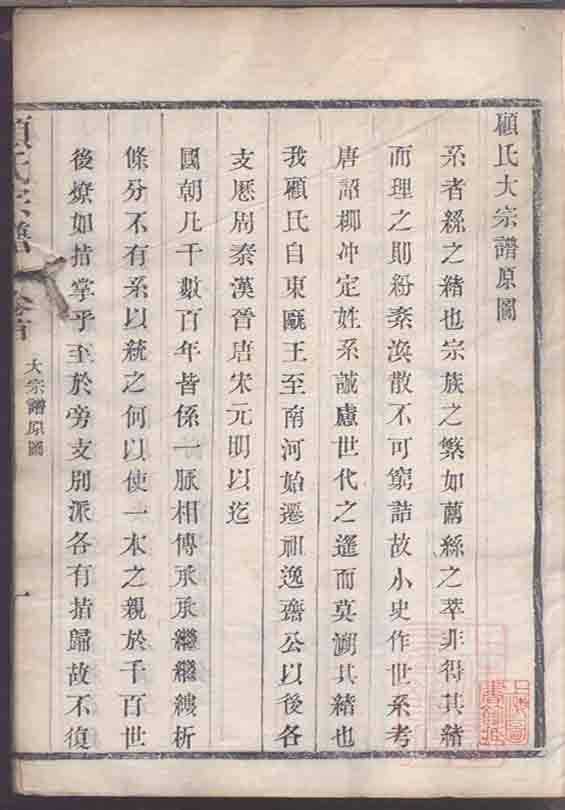 顧氏大宗譜原圖
系者綜之緒也宗族之繁如萬絲之萃非得其緒
而理之則紛紊渙散不可窮詰故小史作世系考
唐詔柳冲定姓系誠慮世代之遙而莫溯其緒也
我顧氏自東甌王至南河始遷祖逸齋公以後各
支歷周秦漢晉唐宋元明以迄
國朝凡千數百年皆係一脈相傳承承繼繼縷析
條分不有系以統之何以使一本之親於千百世
後燎如指掌乎至於旁支別派各有指歸故不復
顧氏宗譜
卷首
大宗譜原圖
一